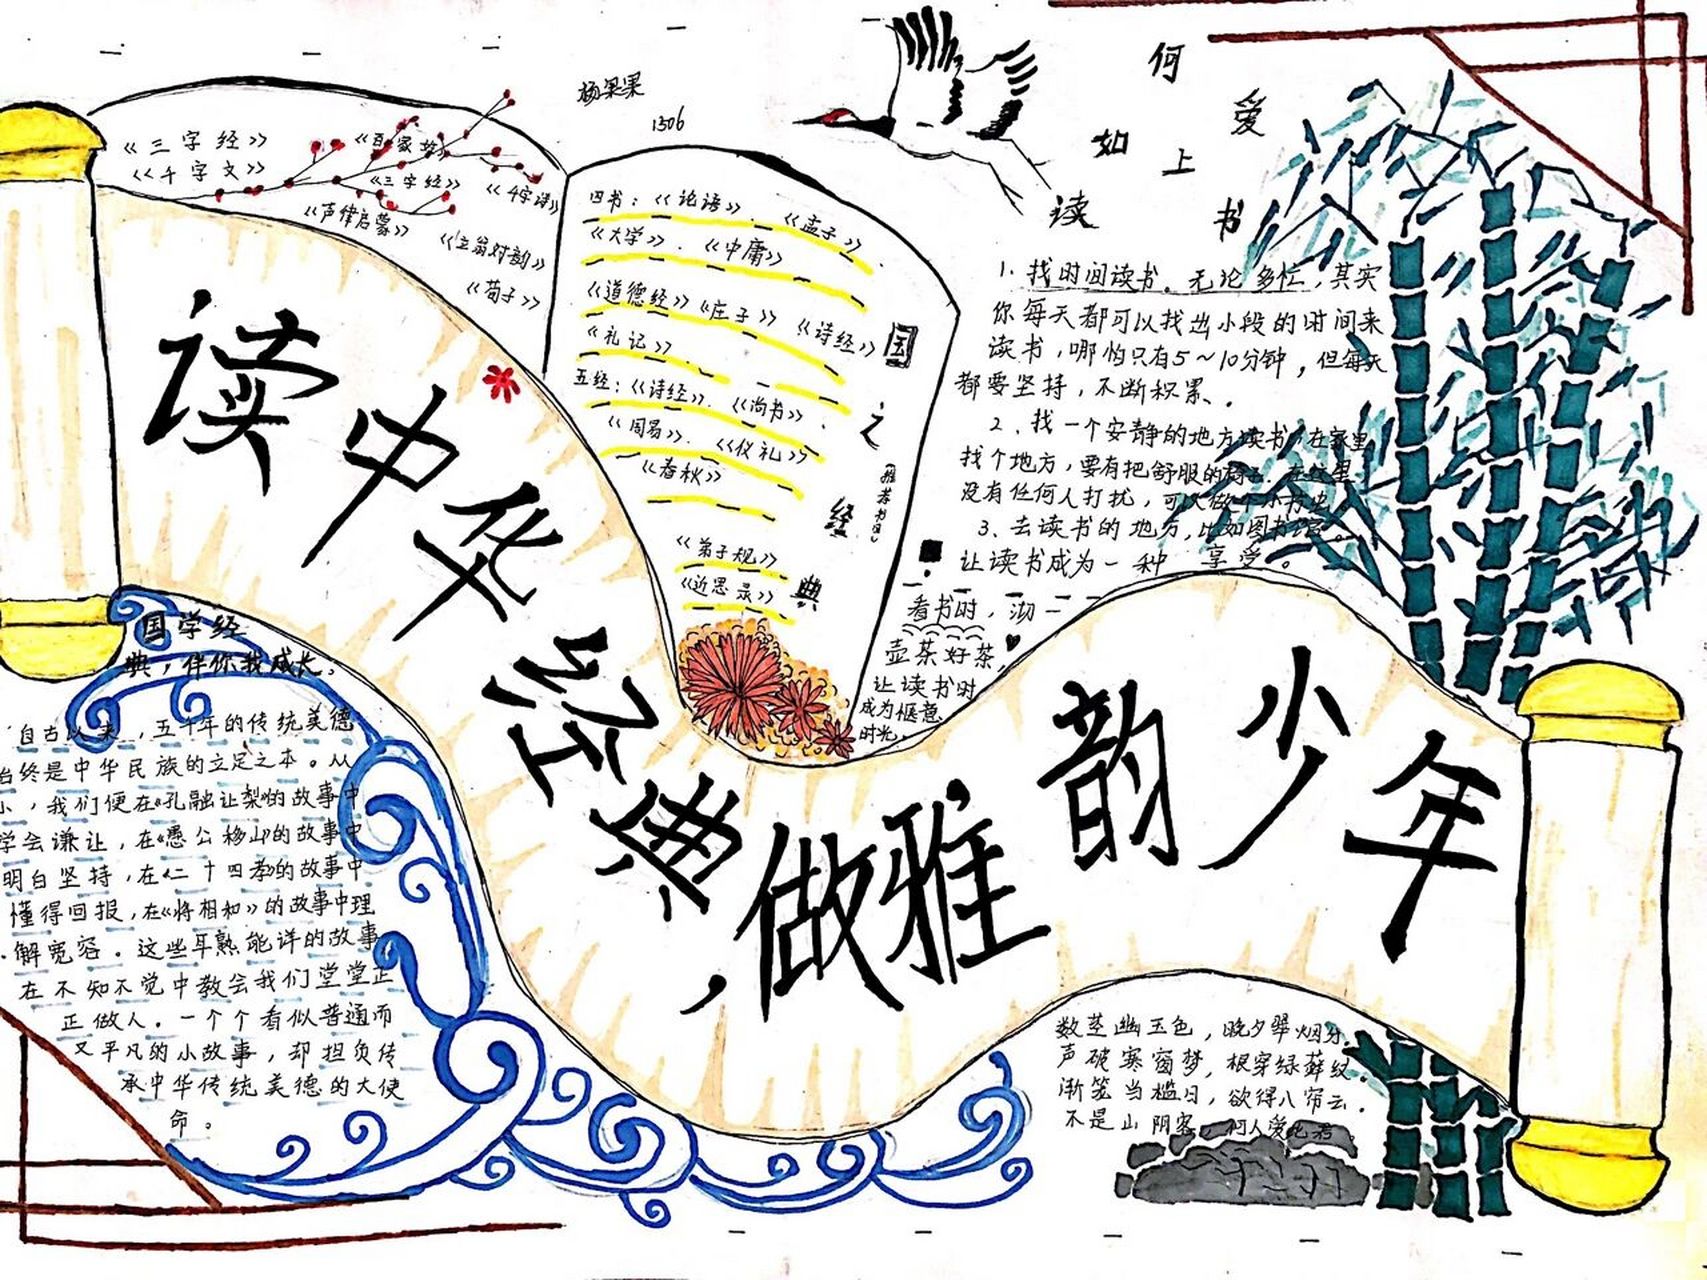 杨果果
1506
《三字经》
《千字文》
《百家姓》
《三字经》
《声律启蒙》
《笠翁对韵》
《荀子》
四书：《论语》、《孟子》
《大学》、《中庸》
《道德经》《庄子》《诗经》
《礼记》、
五经：《诗经》、《尚书》、
《周易》、《仪礼》、
《春秋》
《弟子规》
《近思录》
国之经典
（推荐书目）
如何爱上读书
1、找时间读书。无论多忙，其实
你每天都可以找出小段的时间来
读书，哪怕只有5～10分钟，但每天
都要坚持，不断积累、.
2、找一个安静的地方读书，在家里
找个地方，要有把舒服的椅子，在这里
没有任何人打扰，可以做个小书虫
3、去读书的地方，比如图书馆。
让读书成为一种 享受。
看书时，沏一
壶茶好茶，
让读书时
成为惬意
时光。
读中华经典，做雅韵少年
国学经
典，伴你我成长。
自古以来，五千年的传统美德
始终是中华民族的立足之本。从
小，我们便在《孔融让梨》的故事中
学会谦让，在《愚公移山》的故事中
明白坚持，在《二十四孝》的故事中
懂得回报，在《将相和》的故事中理
解宽容。这些耳熟能详的故事
在不知不觉中教会我们堂堂正
正做人。一个个看似普通而
又平凡的小故事，却担负传
承中华传统美德的大使
命。
数茎幽玉色，晚夕翠烟分。
声破寒窗梦，根穿绿藓纹。
渐笼当槛日，欲得八帘云。
不是山阴客，何人爱此君。